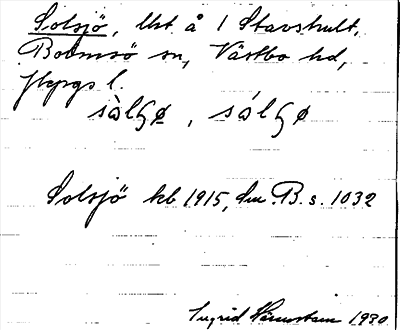 Solsjö, lht å 1 Stavshult,
Bolmsö sn, Västbo hd,
Jkpgs l.
sàlʃø, sálʃø
Solsjö kb 1915, den B. s. 1032
Ingrid Särnstam 1930